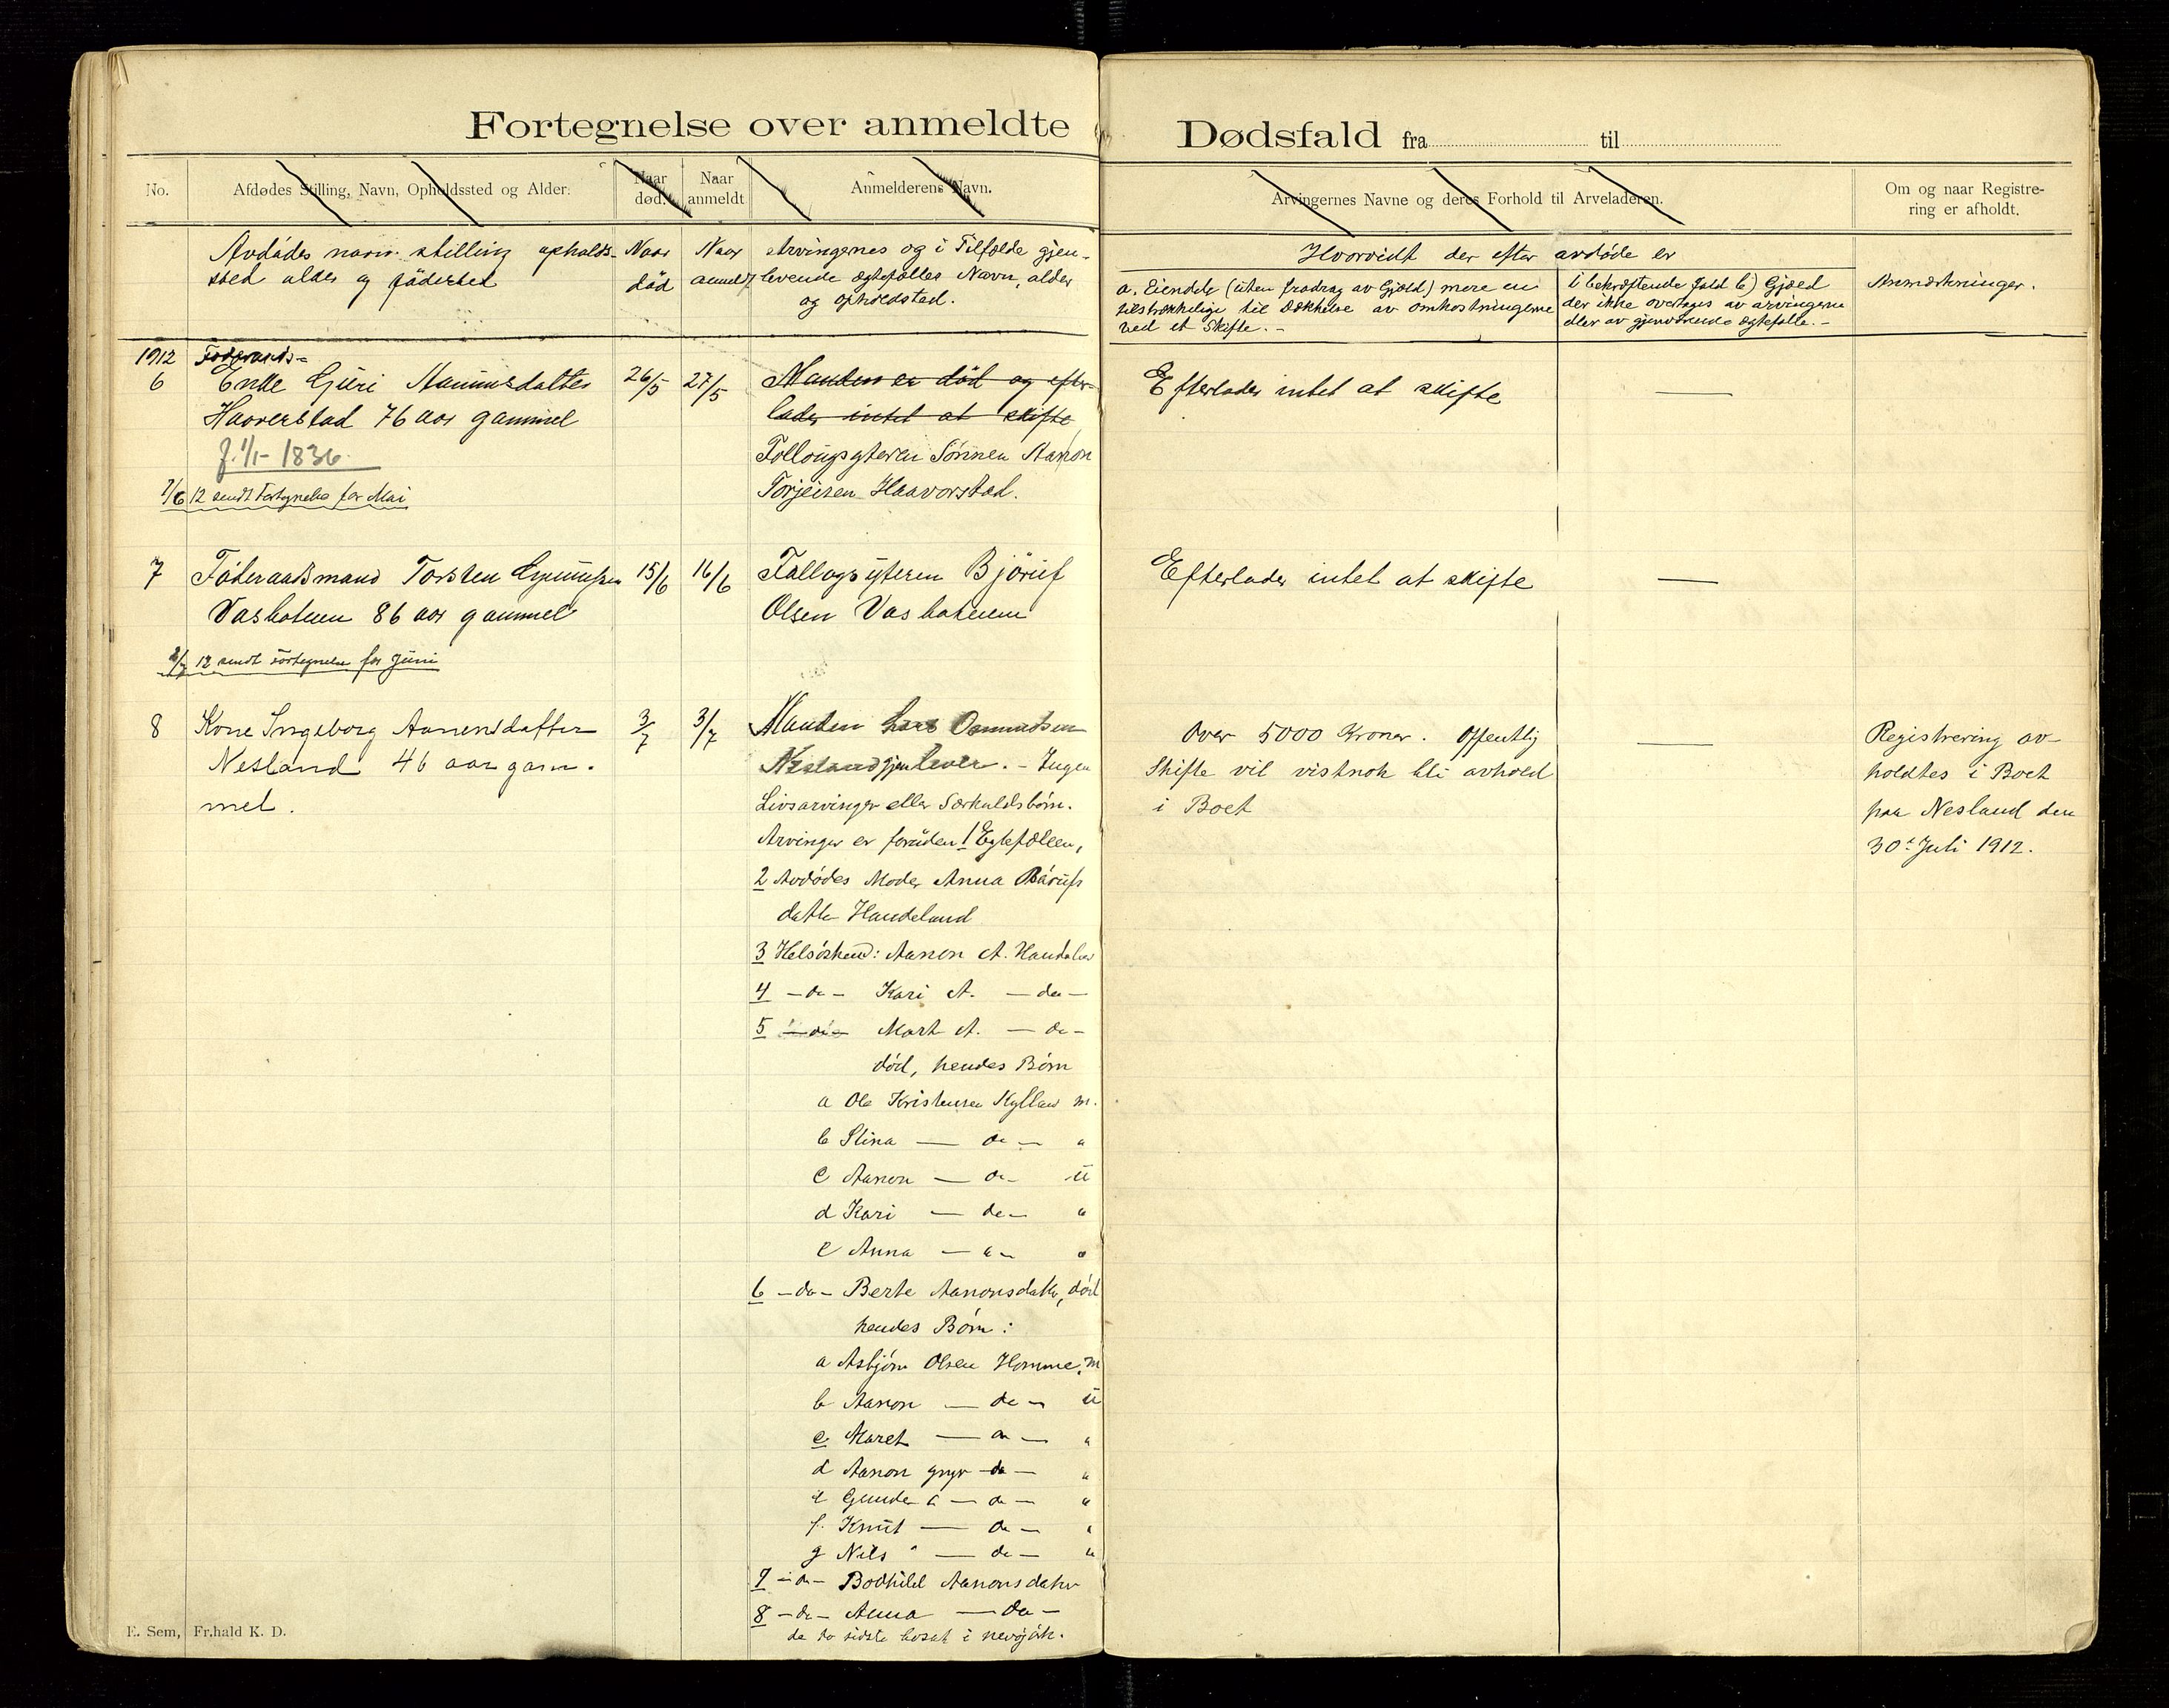 Fortegnelse over anmeldte
No.
Afdødes Stilling, Navn, Opholdssted og Alder.
Naar død.
Naar anmeldt
Anmelderens Navn.
Avdødes navn stilling opholds-
sted alder og fødested
Naar
død
Naar
anmeldt
Arvingernes og i Tilfælde gjen-
levende ægtefælles Navn, alder
og opholdssted.
1912
6
Føderaads-
Enke Guri Aanundsdatter
Haaverstad 76 aar gammel
f. 1/1- 1836
26/5
27/5
Manden er død og efter-
lader intet at skifte
Føllougsyteren Sønnen Aanon
Torjeisen Haavorstad.
1/6 12 sendt Fortegnelse for Mai
7
Føderaadsmand Torsten
Vasbotnen 86 aar gammel
15/6
16/6
Følloogsyteren Bjørulf
Olsen Vasbotnen
2/7 12 sendt Fortegnelse for Juni
8
Kone Ingeborg Aanensdatter
Nesland 46 aar gam-
mel.
3/7
3/7
Manden Lars Osmundsen
Nesland gjenlever. - Ingen
Livsarvinger eller Særkuldsbørn.
Arvinger er foruden 1 Egtefællen,
2 Avdødes Moder Anna
datter Haudeland
3 Helsøsken: Aanon A. Haudeland
4 -do- Kari A. -do-
5 -do- Mart A. -do-
død, hendes Børn
a Ole Kristensen m.
b Stina - do - "
c Aanon - do - u
d Kari - do - "
e Anna - do - "
6 -do- Berte Aanonsdatter, død
hendes Børn:
a Asbjørn Olsen Homme. m
b Aanon - do - u
c Maret - do - "
d Aanon yngr - do - "
e - do - "
f. Knut - do - "
g Nils - do - "
7 -do- Bodhild Aanonsdatter
8 -do- Anna - do -
de to sidste bosat i
E. Sem, Fr.hald K. D.
Dødsfald fra til
Arvingernes Navne og deres Forhold til Arveladeren.
Om og naar Registre-
ring er afholdt.
Hvorvidt der efter avdøde er
a. Eiendele (uten fradrag av Gjæld) mere en
tilstrækkelige til dækkelse av omkostningerne
ved et Skifte. -
i bekræftende fald b) Gjæld
der ikke overtages av arvingerne
eller av gjenværende ægtefælle. -
Anmærkninger.
Efterlader intet at skifte
Efterlader intet at skifte
Over 5000 Kroner. Offentlig
Skifte vil vistnok bli avholdt
i Boet
Registrering av-
holdtes i Boet
paa Nesland den
30te Juli 1912.